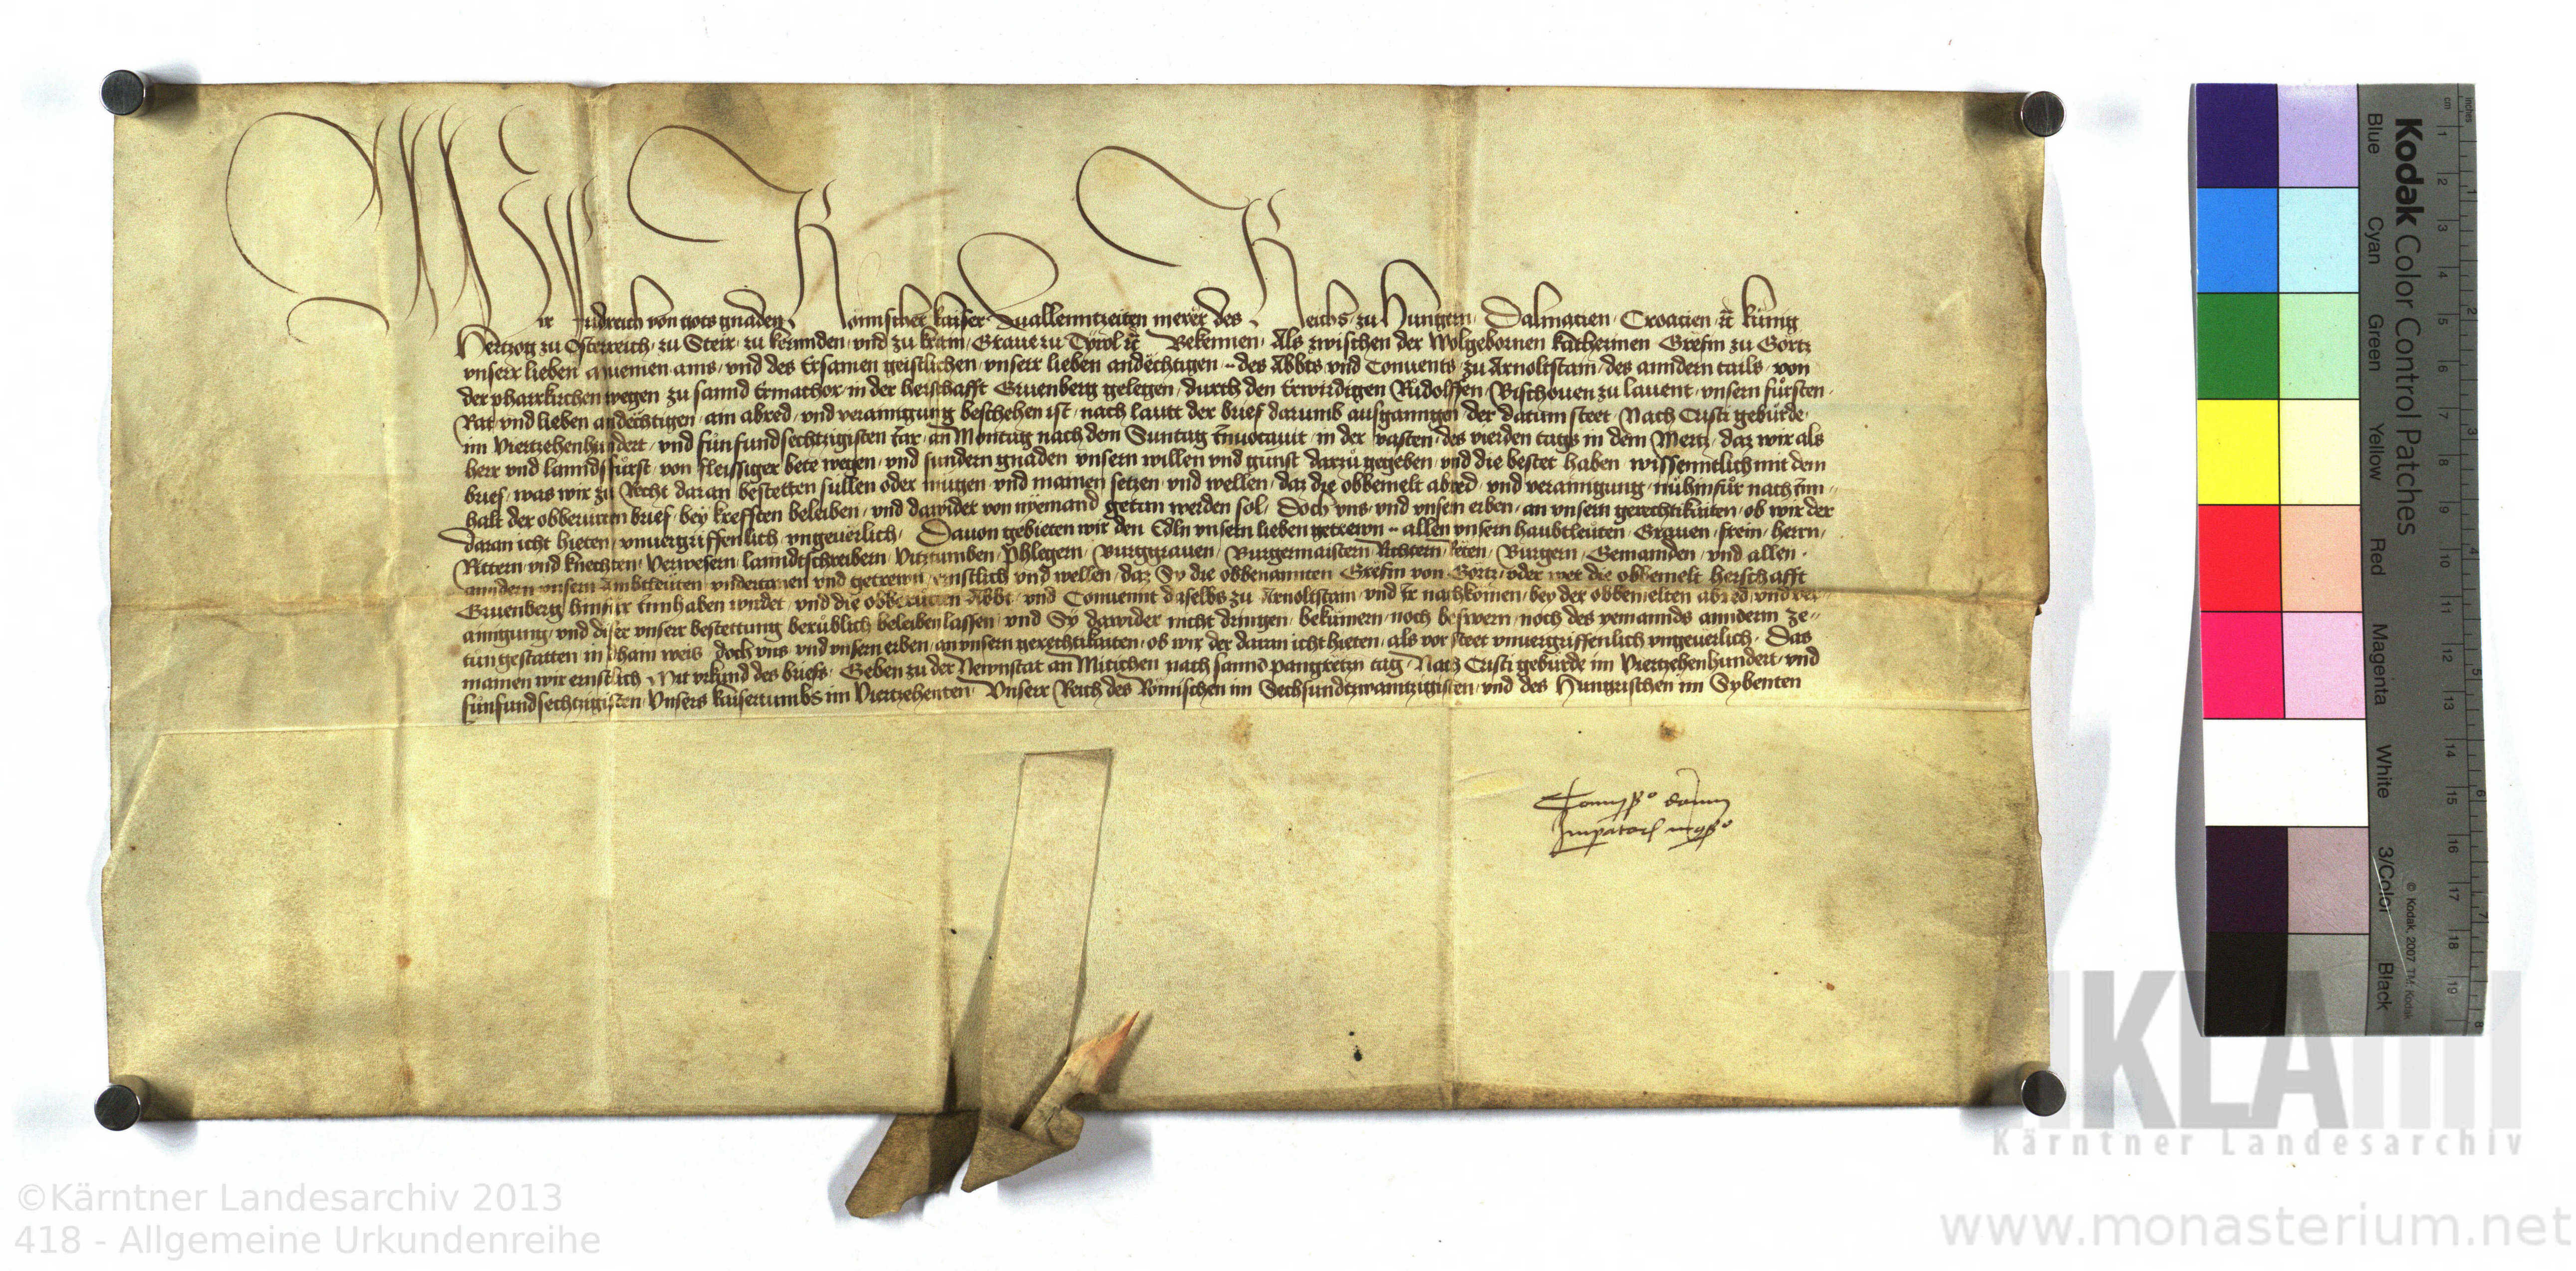 Wir Fridreich von gots gnaden Römischer kaiser Zuallenntzeiten merer des Reichs zu Hungern Dalmacien Croacien etc kunig
Hertzog zu Osterreich zu Steir zu kernnden und zu krain Grave zu Tyrol etc Bekennen Als zwischen der Wolgebornen katherinen Grefin zu Görtz
unserr lieben muemen ains und des Ersamen geistlichen unserr lieben andechtigen des Abbts und Convents zu Arnoltstain des anndern tails von
der pharrkirchen wegen zu sannd Ermachor in der herschafft Gruenberg gelegen durch den Erwirdigen Rudolffen Bischoven zu lavent unsern fürsten
Rat und lieben andechtigen ain abred und verainigung beschehen ist nach lautt der brief darumb ausganngen der datum steet Nach Cristi gebürde
im Viertzehenhundert und fünfundsechtzigisten Iar an Montag nach dem Suntag Invocavit in der vasten des vierden tags in dem Mertz daz wir als
herr und lanndsfürst von fleissiger bete wegen und sundern gnaden unsern willen und gunst darzu gegeben und die bestet haben wissenntlich mit dem
brief was wir zu Recht daran bestetten sullen oder mugen und mainen setzen und wellen daz die obbemelt abred und verainigung nuhinfür nach Inn
halt der obberurten brief bey krefften beleiben und dawider von nyemand getan werden sol Doch uns und unsern erben an unsern gerechtikaiten ob wir der
daran icht hieten unvergriffenlich ungeverlich Davon gebieten wir den Edln unsern lieben getrewn allen unsern haubtleuten Graven frein herrn
Rittern und knechten Verwesern lanndtschreibern Vitztumben Phlegern Burggraven Burgermaistern Richtern Reten Burgern Gemainden und allen
anndern unsern Ambtleuten undertanen und getrewn ernstlich und wellen daz Sy die obbenannten Grefin von Görtz oder wer die obbemelt herschafft
Gruenberg hinfür Innhaben wirdet und die obberurten Abbt und Convennt daselbs zu Arnoltstain und Ir nachkomen bey der obbemelten abred und ver
ainigung und diser unserr bestettung berublich beleiben lassen und Sy dawider nicht dringen bekümern noch beswern noch des yemannds anndern ze
tun gestatten in dhain weis doch uns und unsern erben an unsern gerechtikaiten ob wir der daran icht hieten als vor steet unvergriffenlich ungeverlich Das
mainen wir ernstlich Mit urkund des briefs Geben zu der Newnstat an Mitichen nach sannd pangretzn tag Nach Cristi gebürde im Viertzehenhundert und
fünfundsechtzigisten Unsers kaisertumbs im Viertzehenten Unserr Reich des Römischen im Sechsundtzwaintzigisten und des Hungrischen im Sybenten
Kodak Color Control Patches
Blue Cyan Green Yellow Red Magenta White 3/Color Black
© Kodak, 2007 TM: Kodak
KLA
Kärntner Landesarchiv
©Kärntner Landesarchiv 2013
418 - Allgemeine Urkundenreihe
www.monasterium.net